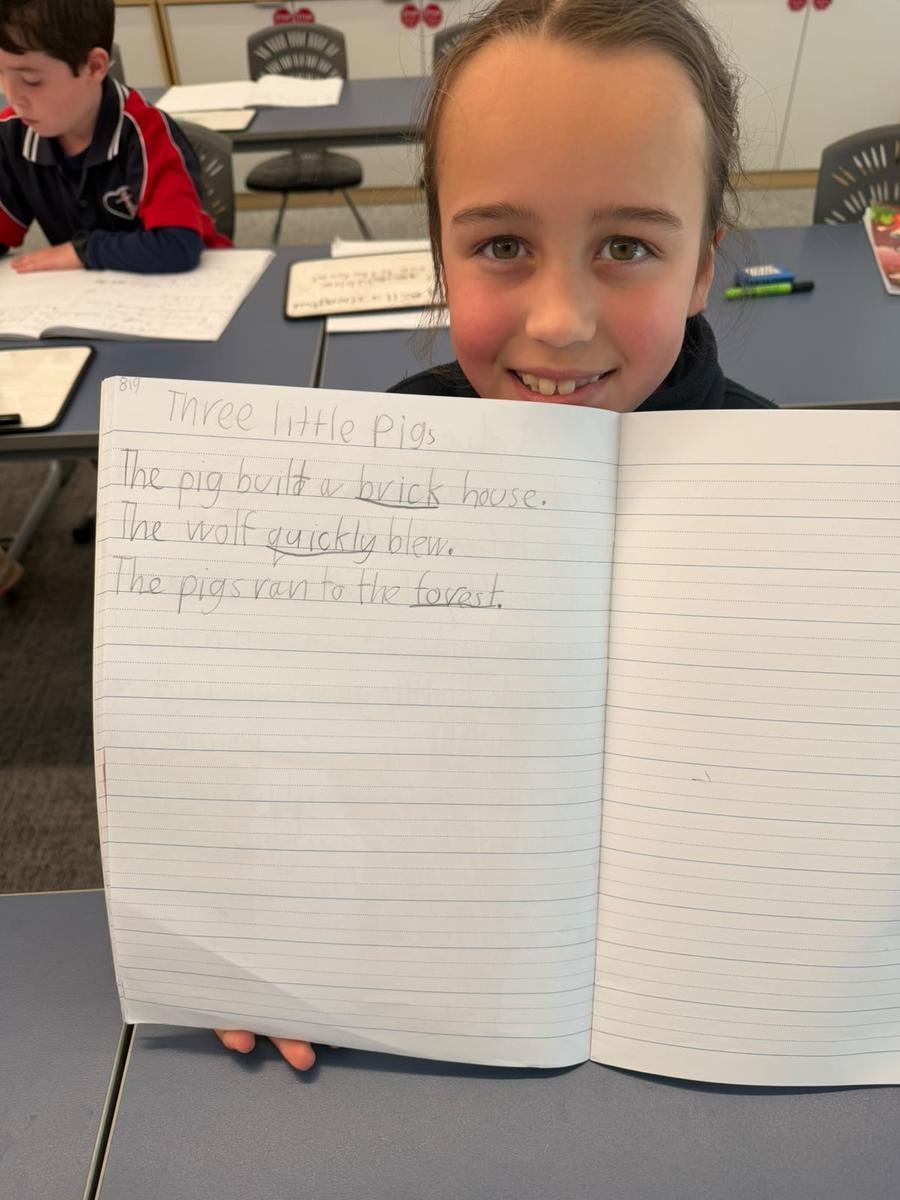 8/9
Three little Pigs
The pig built a brick house.
The wolf quickly blew.
The pigs ran to the forest.